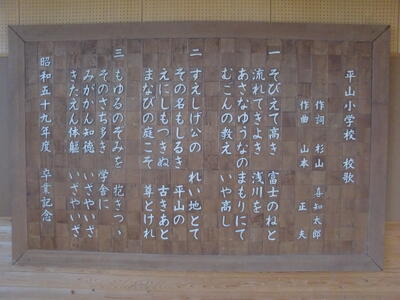 平山小学校 校歌
作詞 杉山 喜知太郎
作曲 山本 正夫
一 そびえて高き 富士のねと
流れてきよき 浅川を
あさなゆうなのまもりにて
むごんの教え いや高し
二 すえしげ公の れい地とて
その名もしるき 平山の
えにしもつきぬ 古きあと
まなびの庭こそ 尊とけれ
三 もゆるのぞみを 抱きつゝ
そのさち多き 学舎に
みがかん知徳 いざやいざ
きたえん体軀 いざやいざ
昭和五十九年度 卒業記念